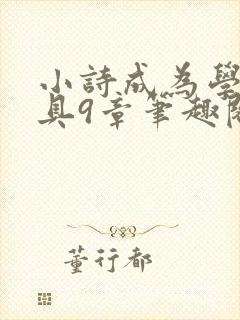 小詩成為學
具9章筆趣閣
董行都